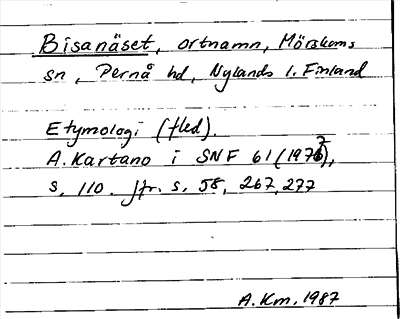 Bisanäset, ortnamn, Mörskoms
sn, Pernå hd, Nylands l. Finland
Etymologi (fled).
A. Kartano i SNF 61 (1976),
s. 110. Jfr. s. 58, 267, 277
A.Km. 1987